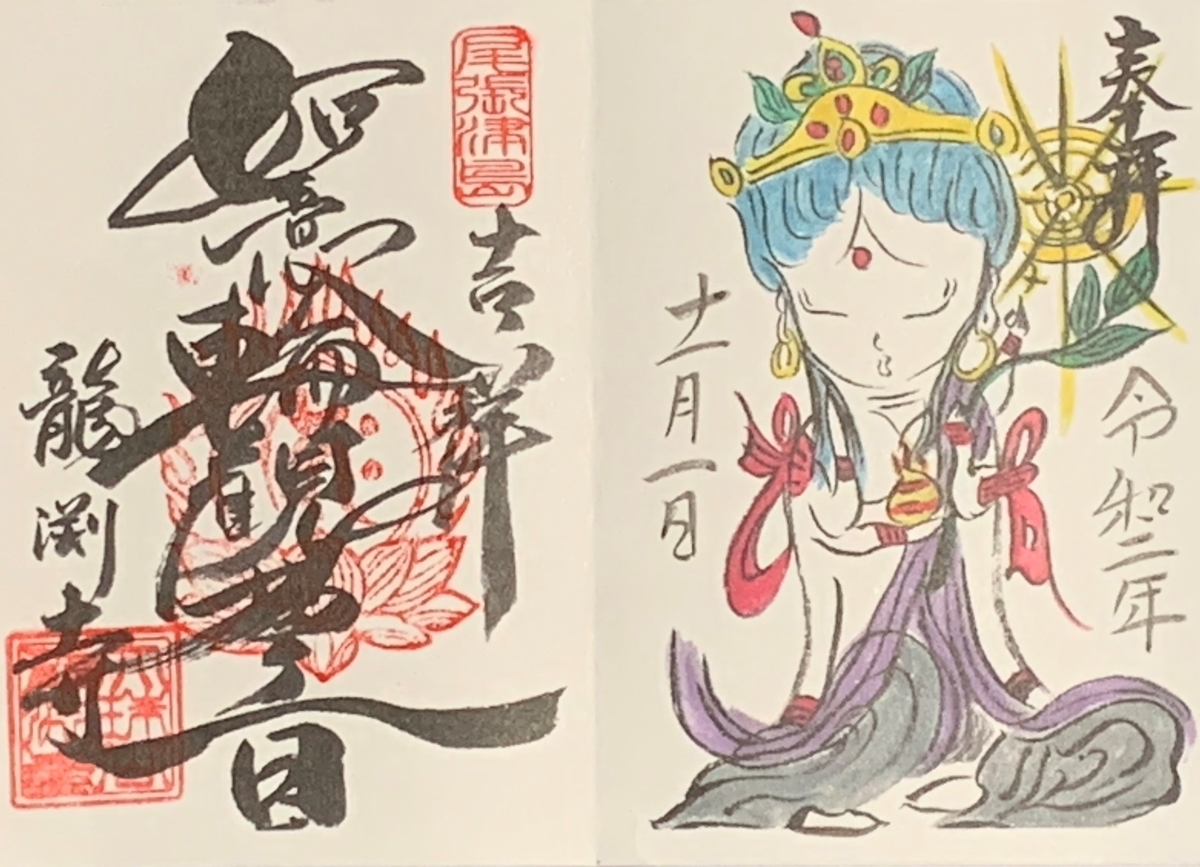 奉拝
令和二年
十一月一日
尾張津島
吉祥
如意輪観世音
龍渕寺